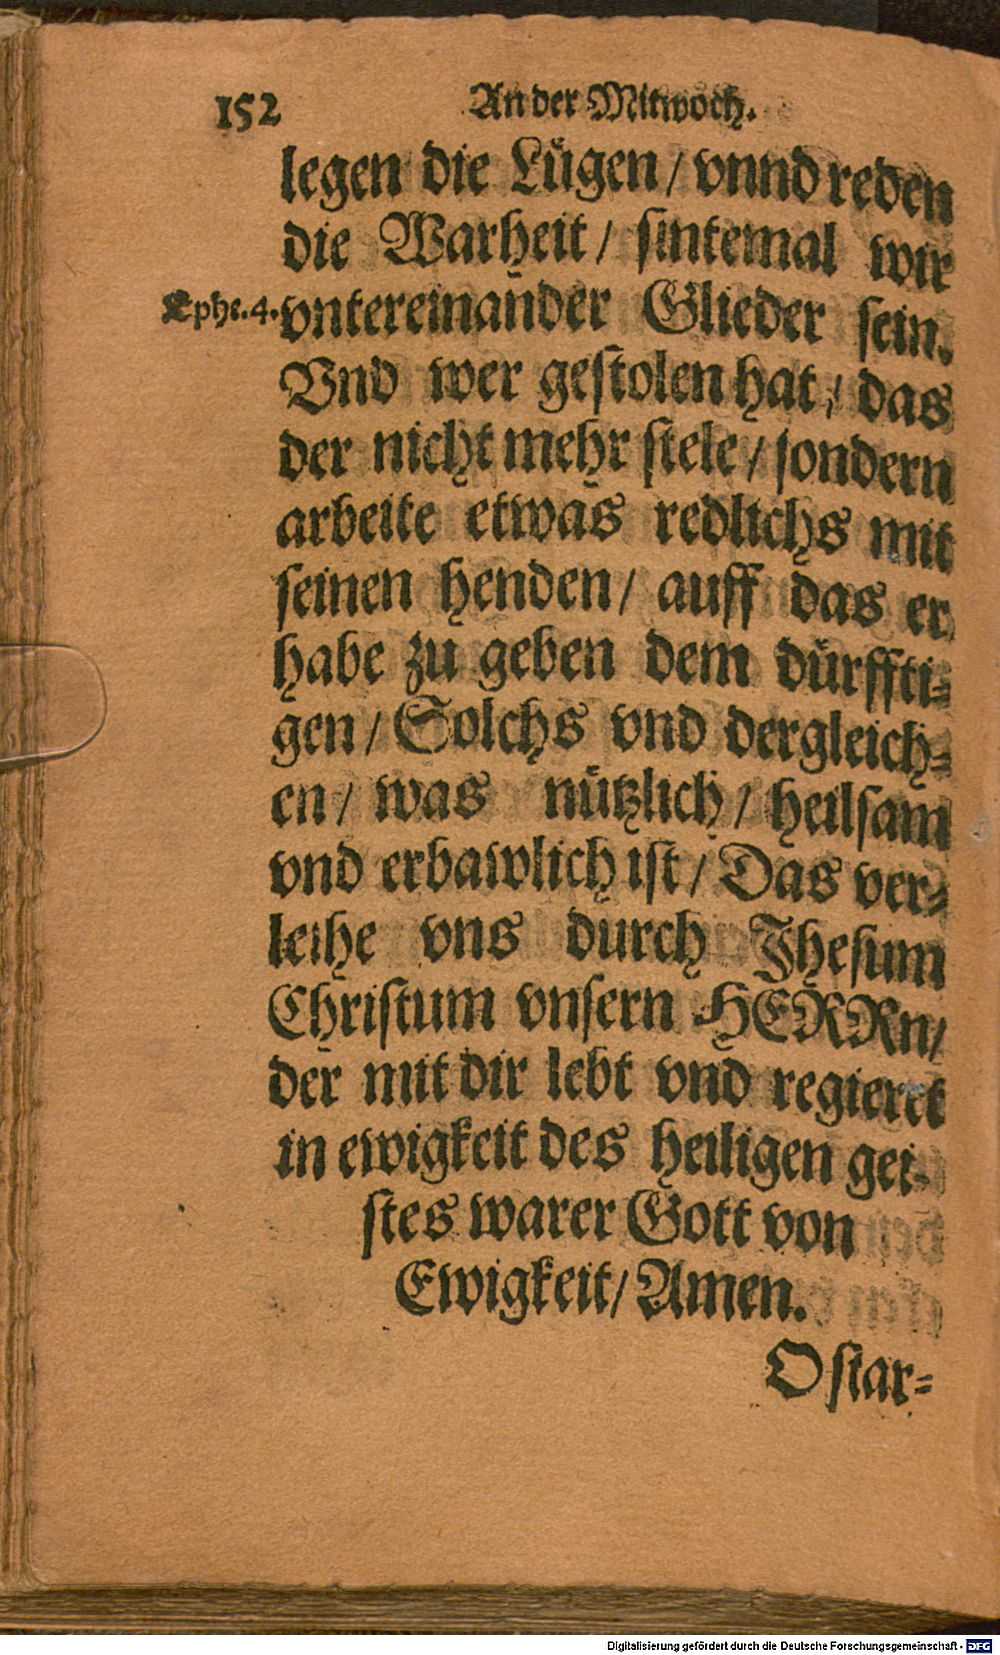 152 An der Mitwoch.
legen die Lügen / vnnd reden
die Warheit / sintemal wir
Ephe. 4. vntereinander Glieder sein.
Vnd wer gestolen hat / das
der nicht mehr stele / sondern
arbeite etwas redlichs mit
seinen henden / auff das er
habe zu geben dem dürffti-
gen / Solchs vnd dergleich-
en / was nützlich / heilsam
vnd erbawlich ist / Das ver-
leihe vns durch Jhesum
Christum vnsern HERRn /
der mit dir lebt vnd regieret
in ewigkeit des heiligen gei-
stes warer Gott von
Ewigkeit / Amen.
Ostar-
Digitalisierung gefördert durch die Deutsche Forschungsgemeinschaft - DFG